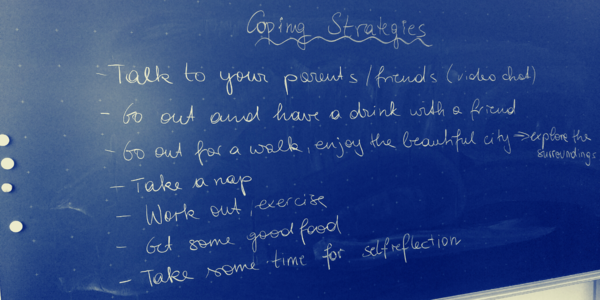 Coping Strategies
- Talk to your parents/friends (video chat)
- Go out and have a drink with a friend
- Go out for a walk, enjoy the beautiful city → explore the
surroundings
- Take a nap
- Work out, exercise
- Get some good food
- Take some time for selfreflection